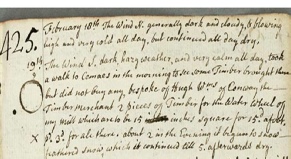 425.
February 18th The Wind N. generally dark and cloudy, & blowing
high and very cold all day, but continued all day dry.
19th The Wind S. dark hazy weather, and very calm all day, took
a walk to Cemaes in the morning to see some Timber brought there
but did not buy any, bespoke of Hugh Wms of Conway the
Timber Merchant 2 pieces of Timber for the Water Wheel of
my mill which are to be 15 inches square for
X for all there: about 2 in the Evening it began to snow
feathered snow which it continued till 5. afterwards dry.